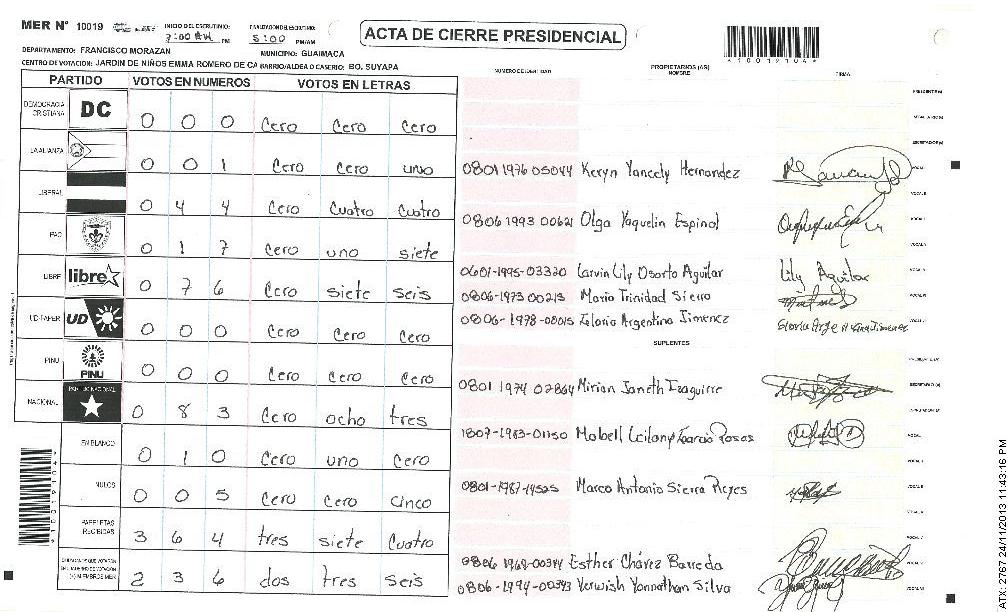 MER N° 10019
INICIO DEL ESCRUTINIO: FINALIZACION DEL ESCRUTINIO:
7:00 AM PM 5:00 PM/AM
ACTA DE CIERRE PRESIDENCIAL
*10019104*
DEPARTAMENTO: FRANCISCO MORAZAN MUNICIPIO: GUAIMACA
CENTRO DE VOTACION: JARDIN DE NIÑOS EMMA ROMERO DE CA BARRIO/ALDEA O CASERIO: BO. SUYAPA
PARTIDO VOTOS EN NUMEROS VOTOS EN LETRAS
DEMOCRACIA CRISTIANA DC 0 0 0 Cero Cero Cero
LA ALIANZA 0 0 1 Cero Cero uno
LIBERAL 0 4 4 Cero Cuatro Cuatro
PAC 0 1 7 Cero uno siete
LIBRE libre 0 7 6 Cero siete seis
UD-FAPER UD 0 0 0 Cero Cero Cero
PINU PINU 0 0 0 Cero Cero Cero
NACIONAL PARTIDO NACIONAL 0 8 3 Cero ocho tres
EN BLANCO 0 1 0 Cero uno Cero
NULOS 0 0 5 Cero Cero Cinco
PAPELETAS RECIBIDAS 3 6 4 tres siete Cuatro
2 3 6 dos tres seis
NUMERO DE IDENTIDAD PROPIETARIOS (AS) NOMBRE FIRMA
0801 1976 05044 Keryn Yancely Hernandez
0806 1993 00621 Olga Yaquelin Espinal
0601-1995-03320 Larvin Lily Osorto Aguilar Lily Aguilar
0806-1973 00213 Mario Trinidad Sierra
0806-1978-00015 Gloria Argentina Jimenez Gloria Argentina Jimenez
SUPLENTES
0801 1974 02864 Mirian Janeth Izaguirre
1807-1983-01150 Mabell Rosas
0801-1987-14525 Marco Antonio Sierra Reyes
0806 1969-00344 Esther Chávez Barreda
0806-1994-00343 Yerwish Yonnathan Silva
*10019104*
ATX 2767 24/11/2013 11:43:16 PM